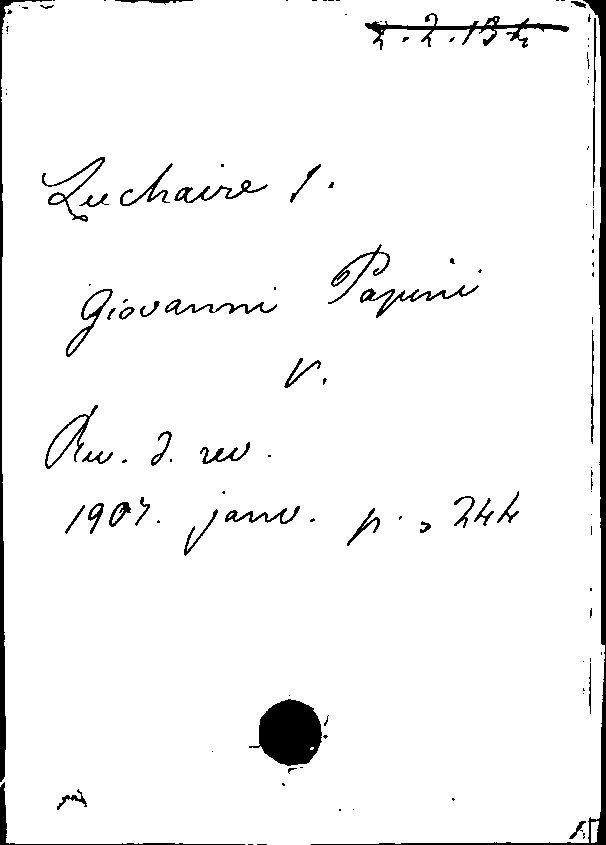 2.2.134
Luchaire J.
Giovanni Papini
V.
Rev. d. rev.
1907. janv. p. 244